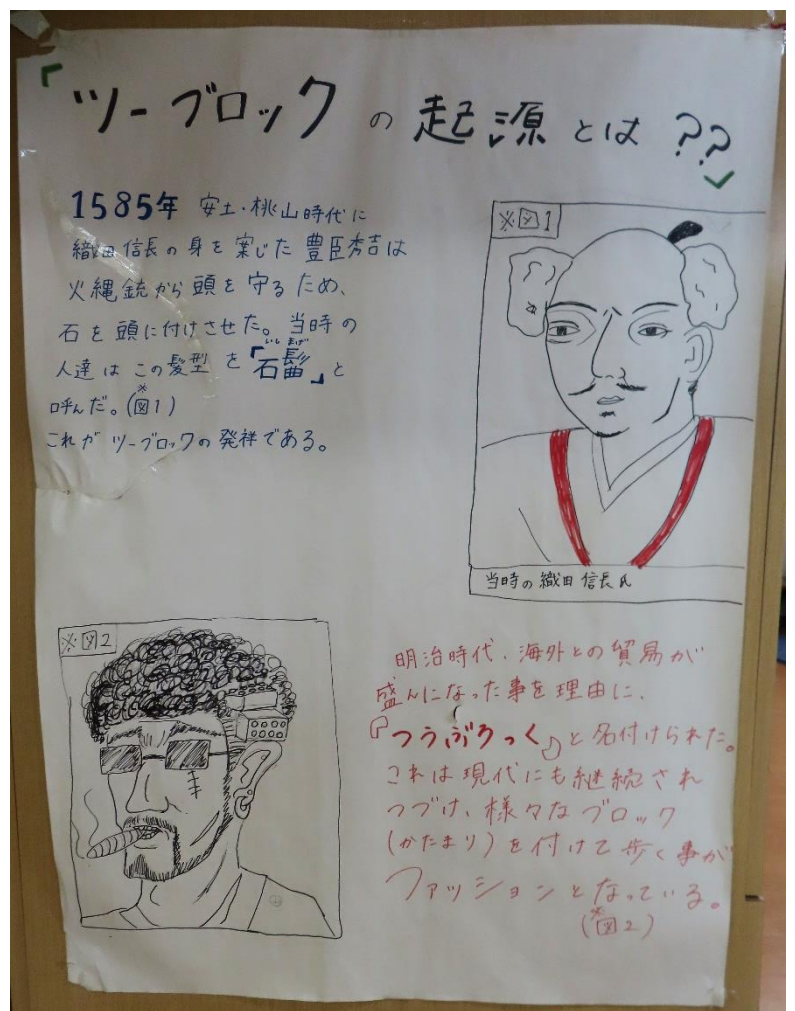 『ツーブロックの起源とは??』
1585年 安土・桃山時代に
織田信長の身を案じた豊臣秀吉は
火縄銃から頭を守るため、
石を頭に付けさせた。当時の
人達はこの髪型を「石髷」と
いし まげ
呼んだ。(※図1)
これがツーブロックの発祥である。
※図1
当時の織田信長氏
※図2
明治時代、海外との貿易が
盛んになった事を理由に、
『つうぶろっく』と名付けられた。
これは現代にも継続され
つづけ、様々なブロック
(かたまり)を付けて歩く事が
ファッションとなっている。
(※図2)